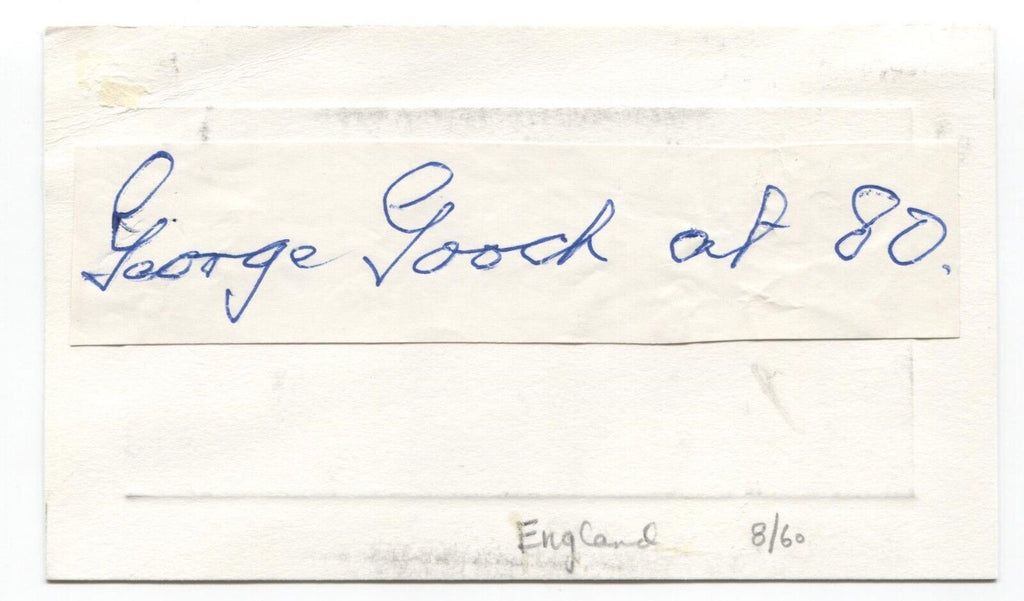 George Gooch at 80.
England 8/60